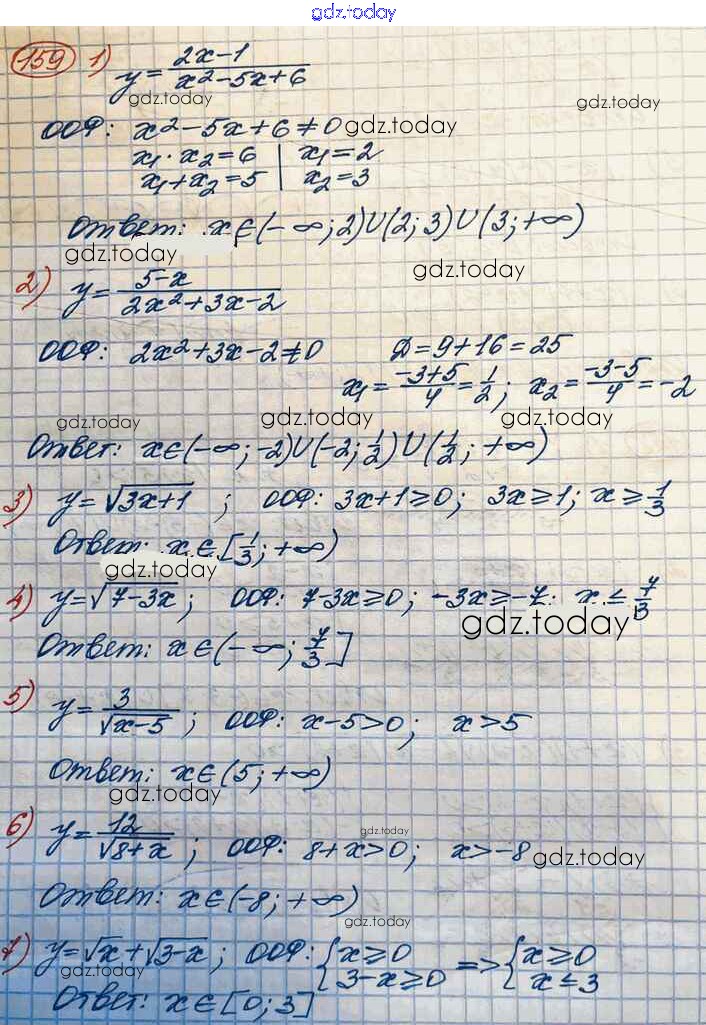 gdz.today
159 1) y = (2x-1)/(x²-5x+6)
gdz.today gdz.today
ООФ: x²-5x+6≠0 gdz.today
x₁·x₂=6 | x₁=2
x₁+x₂=5 | x₂=3
Ответ: x∈(-∞;2)∪(2;3)∪(3;+∞)
gdz.today gdz.today
2) y = (5-x)/(2x²+3x-2)
ООФ: 2x²+3x-2≠0 D=9+16=25
x₁ = (-3+5)/4 = 1/2; x₂ = (-3-5)/4 = -2
gdz.today gdz.today gdz.today
Ответ: x∈(-∞;-2)∪(-2;1/2)∪(1/2;+∞)
3) y=√(3x+1); ООФ: 3x+1≥0; 3x≥1; x≥1/3
Ответ: x∈[1/3;+∞)
gdz.today
4) y=√(7-3x); ООФ: 7-3x≥0; -3x≥-7; x≤7/3
gdz.today
Ответ: x∈(-∞;7/3]
5) y = 3/√(x-5); ООФ: x-5>0; x>5
Ответ: x∈(5;+∞)
gdz.today
6) y = 12/√(8+x); ООФ: 8+x>0; x>-8
gdz.today gdz.today
Ответ: x∈(-8;+∞)
gdz.today
7) y=√x+√(3-x); ООФ: {x≥0 3-x≥0 => {x≥0 x≤3
gdz.today gdz.today
Ответ: x∈[0;3]